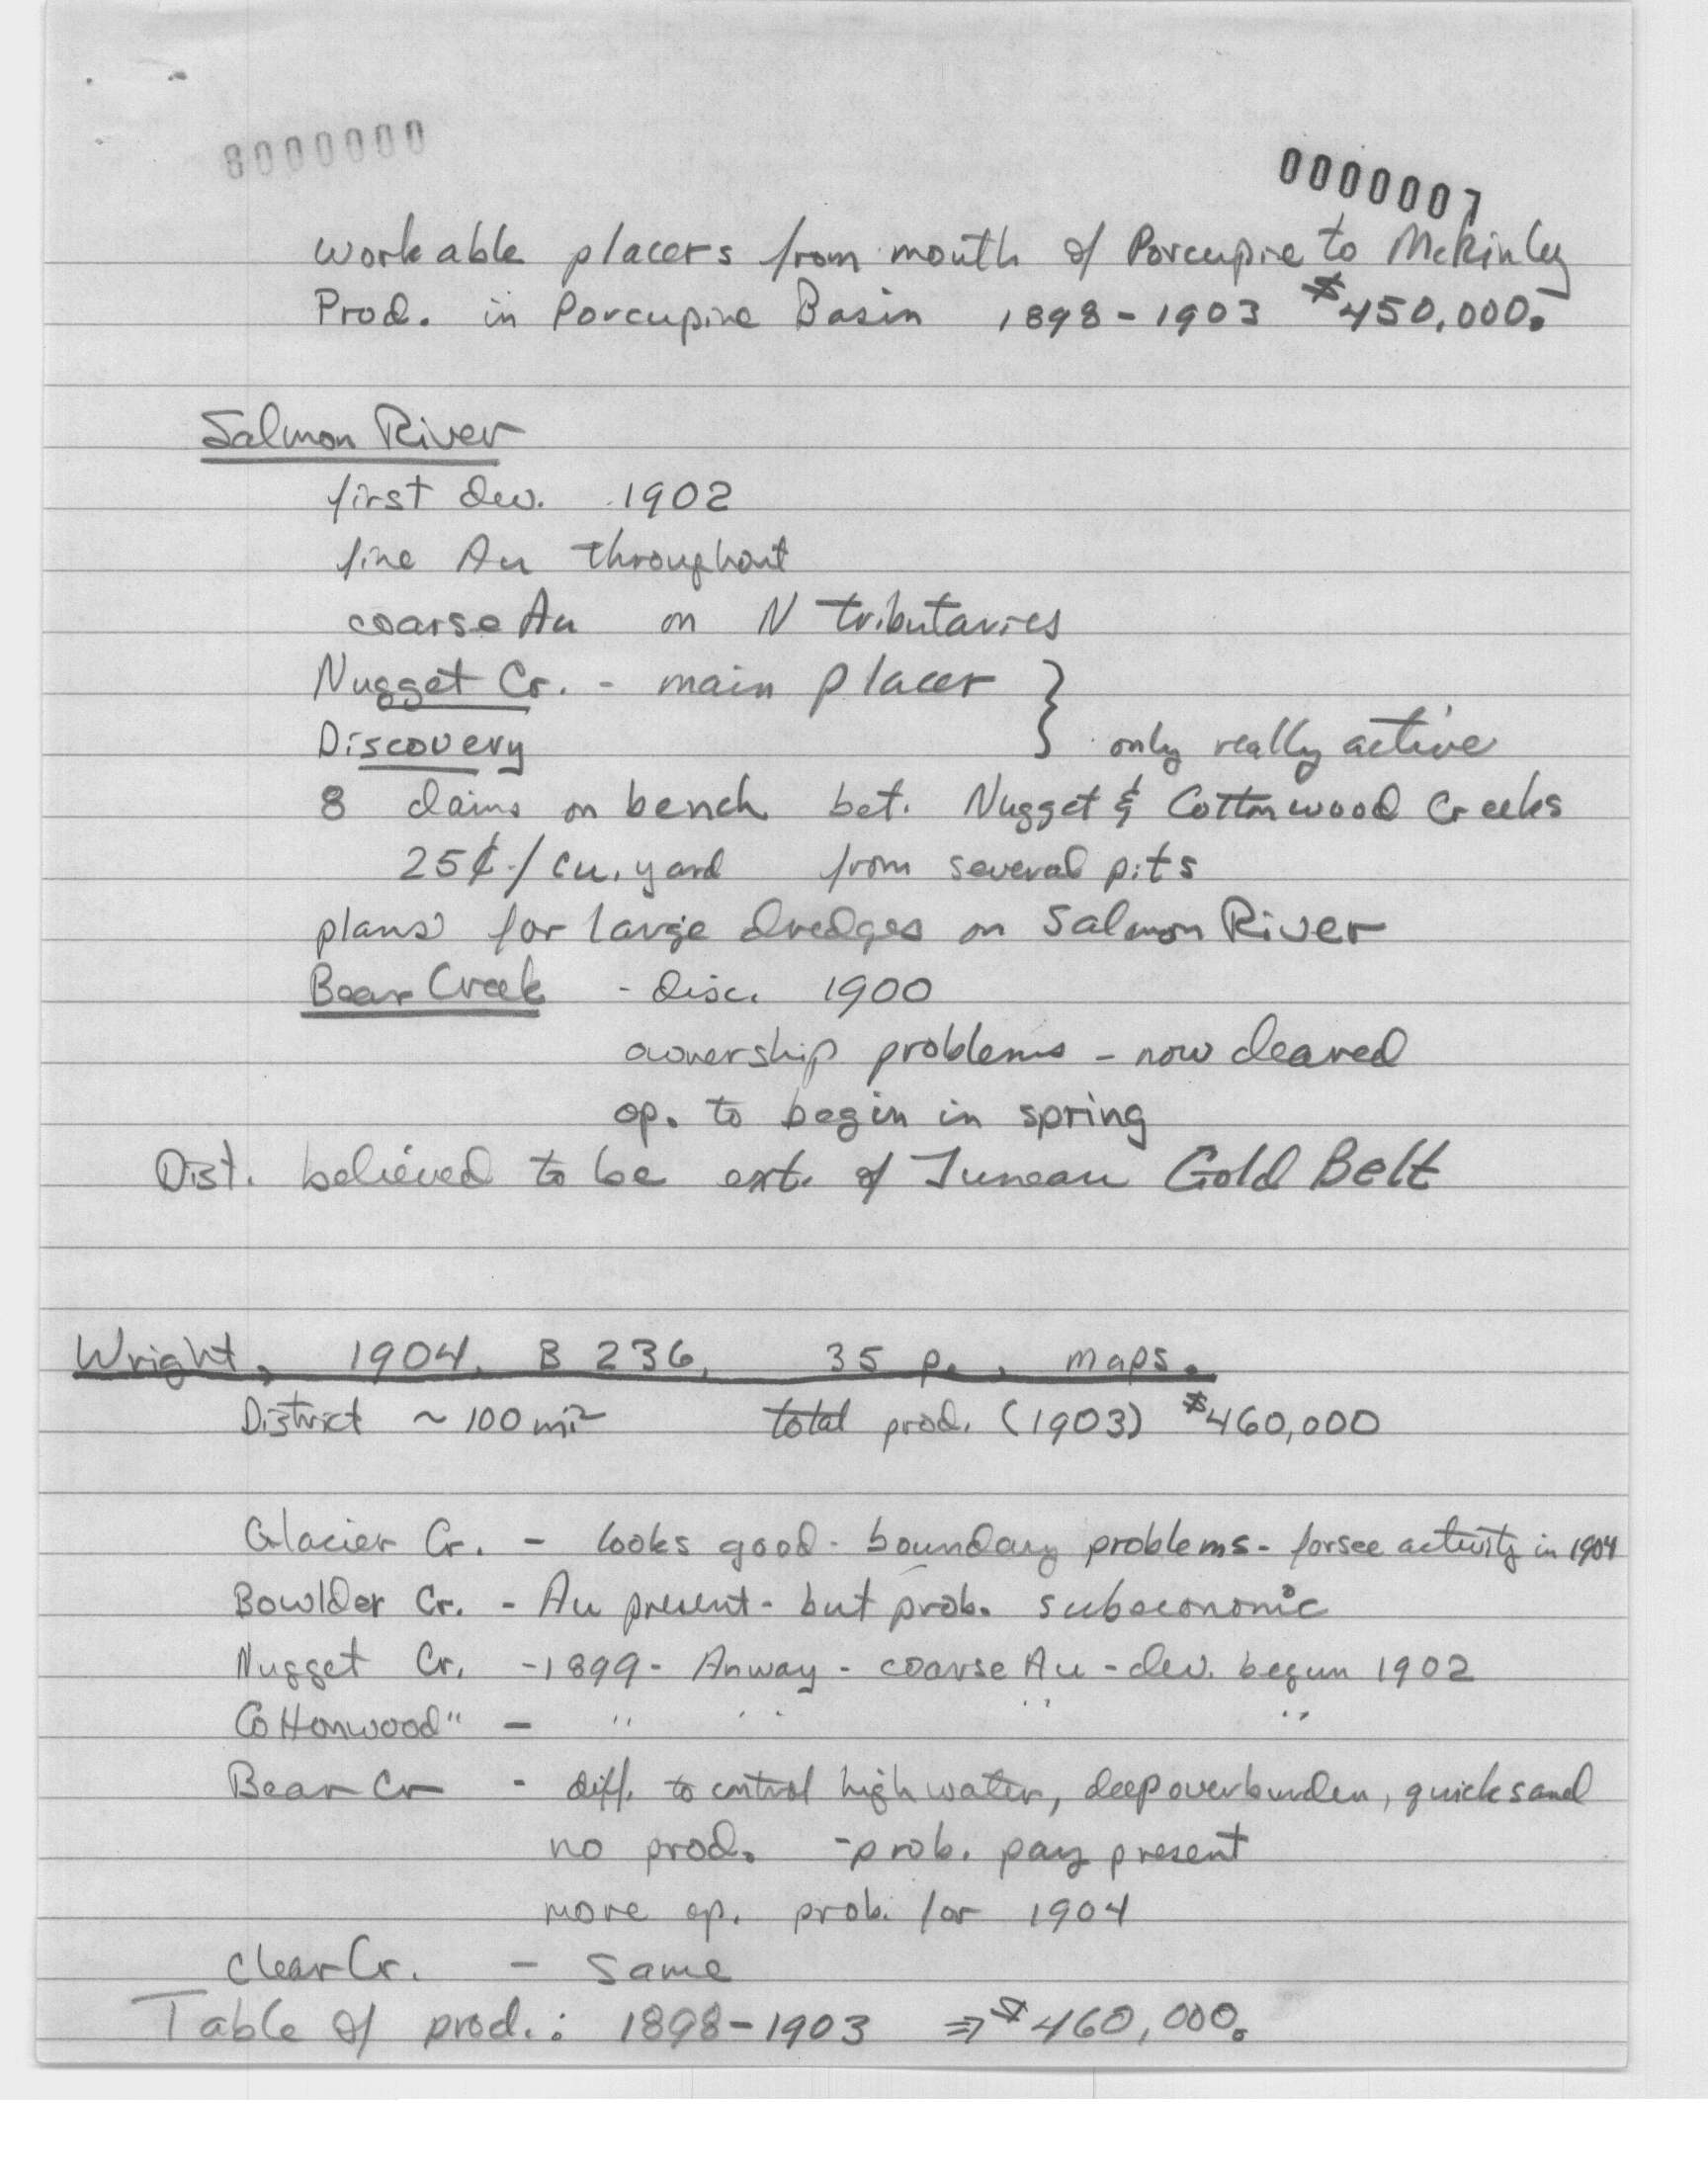 8000000
0000007
workable placers from mouth of Porcupine to McKinley
Prod. in Porcupine Basin 1898-1903 $450,000.
Salmon River
first dev. 1902
fine Au throughout
coarse Au on N tributaries
Nugget Cr. - main placer
Discovery } only really active
8 claims on bench bet. Nugget & Cottonwood Creeks
25¢/cu. yard from several pits
plans for large dredges on Salmon River
Bear Creek - disc. 1900
ownership problems - now cleared
op. to begin in spring
Dist. believed to be ext. of Juneau Gold Belt
Wright, 1904, B 236, 35 p., maps.
District ~ 100 mi² total prod. (1903) $460,000
Glacier Cr. - looks good - boundary problems - forsee activity in 1904
Bowlder Cr. - Au present - but prob. subeconomic
Nugget Cr. - 1899 - Anway - coarse Au - dev. begun 1902
Cottonwood " - " " " "
Bear Cr - diff. to control high water, deep overburden, quicksand
no prod. - prob. pay present
more op. prob. for 1904
Clear Cr. - same
Table of prod.: 1898-1903 ⇒ $460,000.